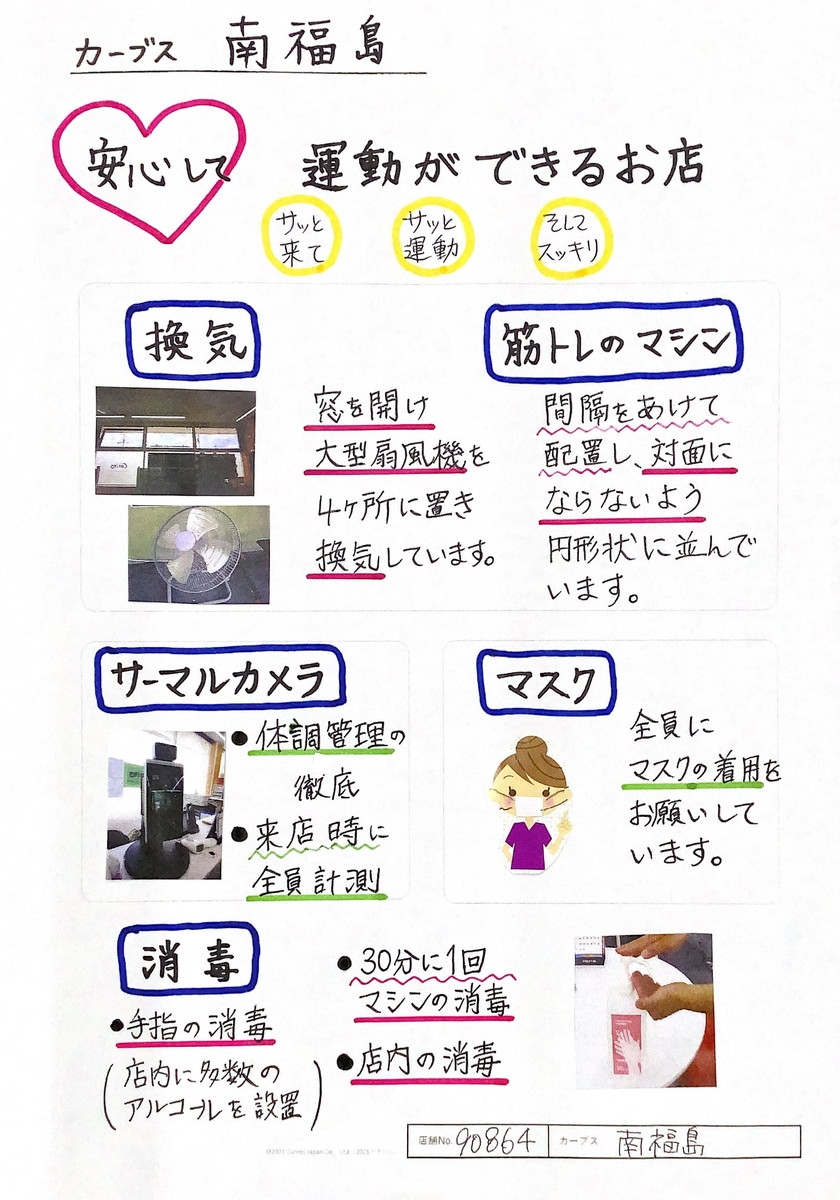 カーブス 南福島
安心して 運動ができるお店
サッと
来て
サッと
運動
そして
スッキリ
換気
窓を開け
大型扇風機を
4ヶ所に置き
換気しています。
筋トレのマシン
間隔をあけて
配置し、対面に
ならないよう
円形状に並んで
います。
サーマルカメラ
●体調管理の
徹底
●来店時に
全員計測
マスク
全員に
マスクの着用を
お願いして
います。
消毒
●手指の消毒
(店内に多数の
アルコールを設置)
●30分に1回
マシンの消毒
●店内の消毒
店舗No. 90864 カーブス 南福島